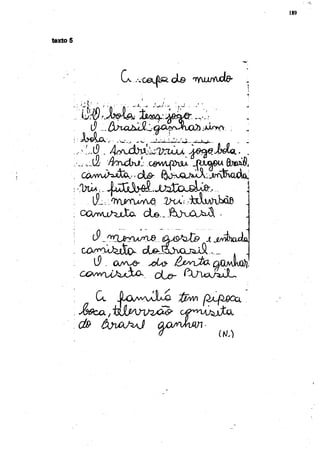 189
texto 5
A copa do mundo
O bola tem jogo
O Brasil ganhar um
bola.
O André viu joge bola.
O André comprei pegou Brasil,
camizeta do Brasil entrada
viu futebol estadio.
O menino viu televisão
camuzeta do Brasil.
O menino gosto e entrada
camizeta do Brasil
O ano do Penta ganhar
camizeta do Brasil
A família tem pipoca
boca, televizão camizeta
do Brasil ganhar.
(N.)